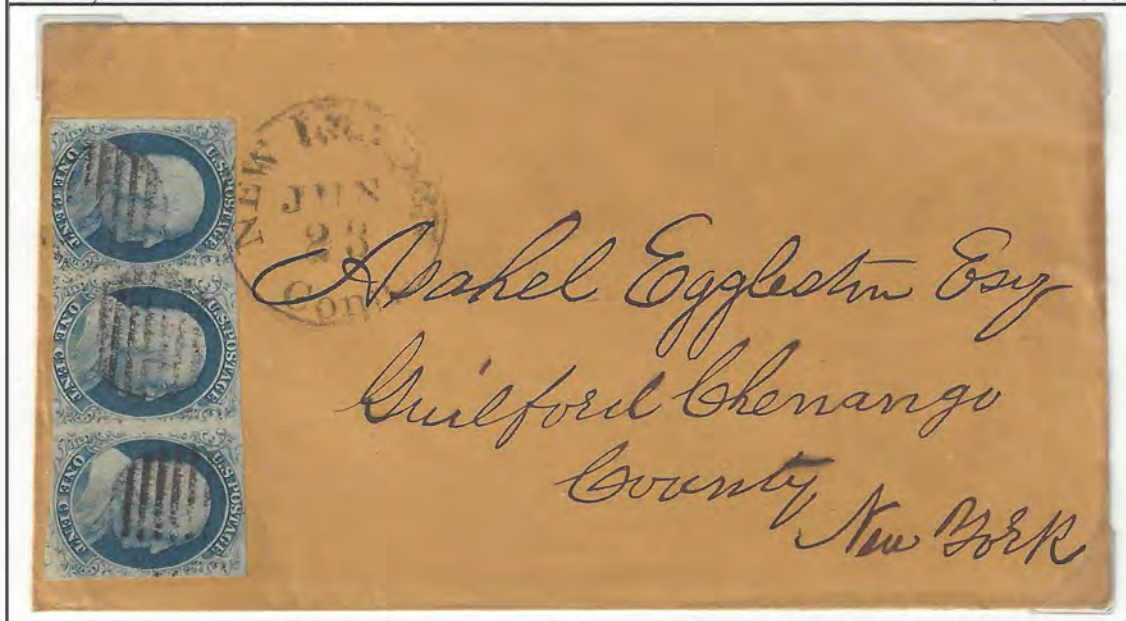 U.S. POSTAGE
ONE CENT
U.S. POSTAGE
ONE CENT
U.S. POSTAGE
ONE CENT
NEW
JUN
23
Con
Asahel Eggleston Esq
Guilford Chenango
County
New York